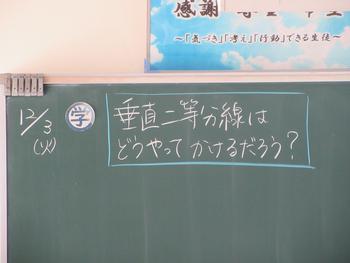 感謝
～「気づき」「考え」「行動」できる生徒～
12/3
(火)
学
垂直二等分線は
どうやってかけるだろう?